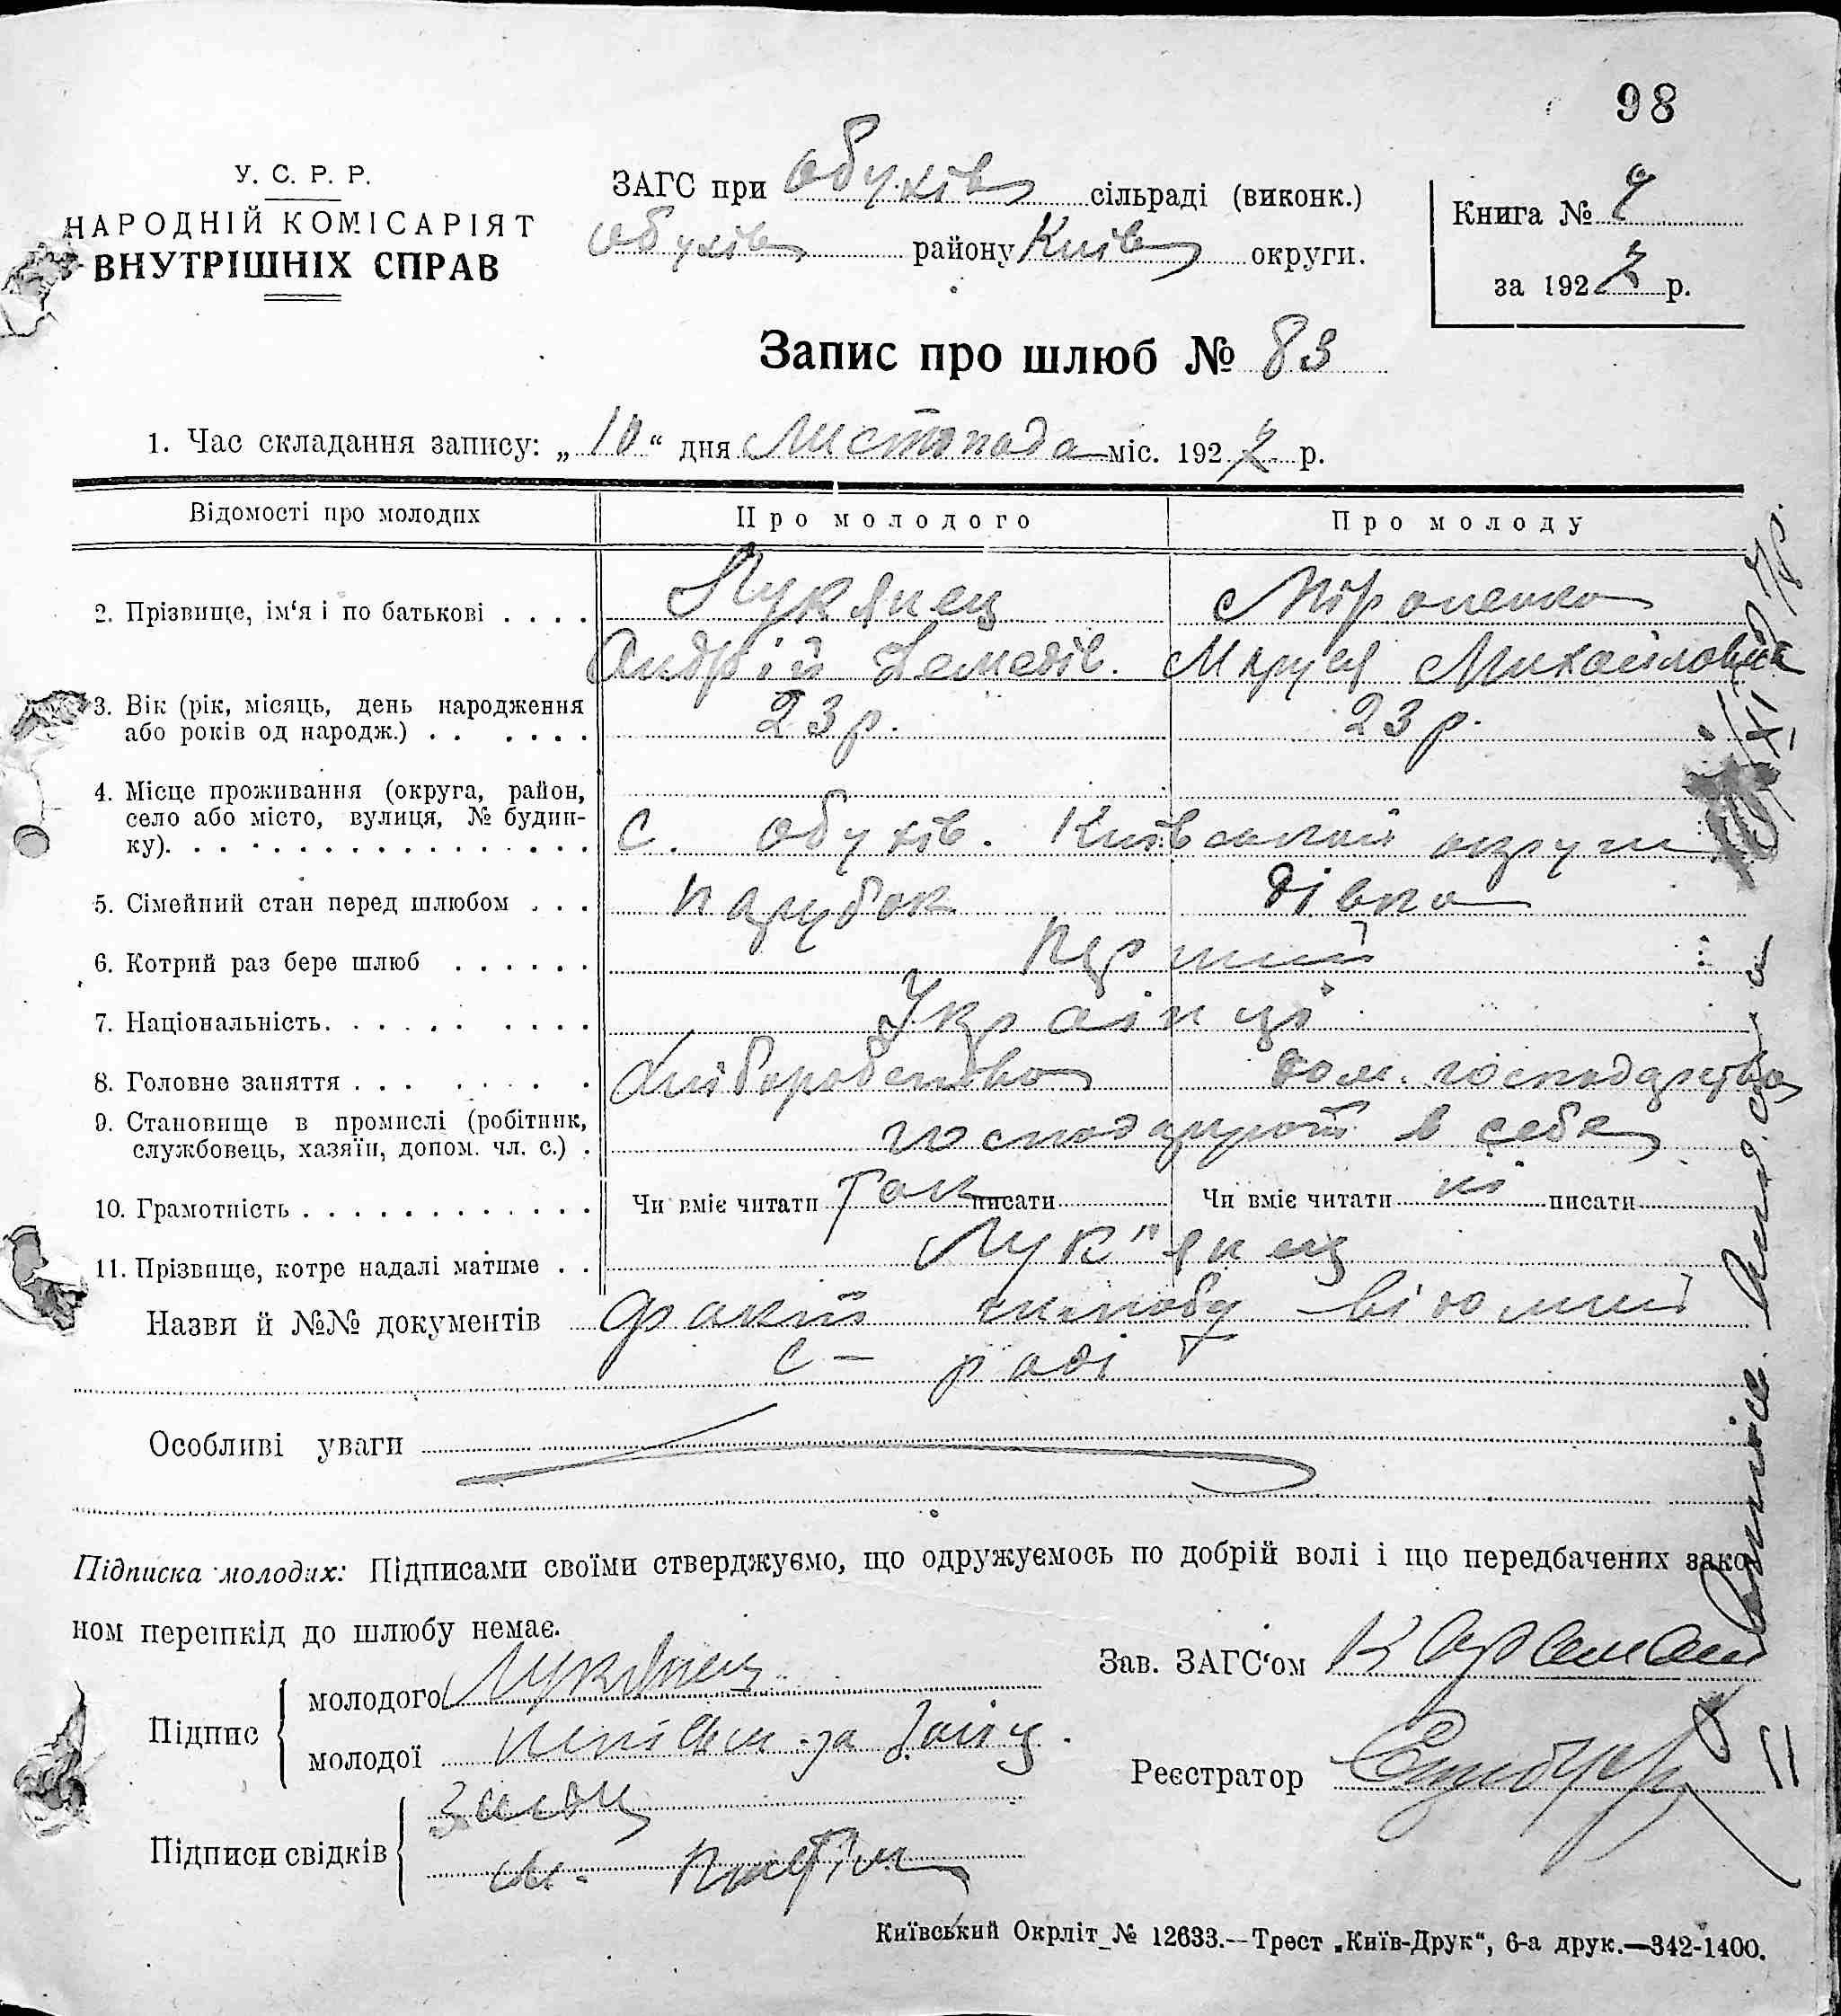 98
У. С. Р. Р.
НАРОДНІЙ КОМІСАРІЯТ
ВНУТРІШНІХ СПРАВ
ЗАГС при Обухів сільраді (виконк.)
Обухів району Київ округи.
Книга №
за 1927 р.
Запис про шлюб № 83
1. Час складання запису: „10“ дня Листопада міс. 1927 р.
Відомості про молодих
Про молодого
Про молоду
2. Прізвище, ім‘я і по батькові . . . .
Лукянец
Міроненко
Андрій Демедів.
Маруся Михайловна
3. Вік (рік, місяць, день народження
або років од народж.) . . . . . .
23 р.
23 р.
4. Місце проживання (округа, район,
село або місто, вулиця, № будин-
ку). . . . . . . . . . . . . . . .
с. Обухів. Київської округи
5. Сімейний стан перед шлюбом . . .
парубок
дівка
6. Котрий раз бере шлюб . . . . . .
перший
7. Національність. . . . . . . . . .
Українці
8. Головне заняття . . . . . . . .
Хліборобство
дом. господарство
9. Становище в промислі (робітник,
службовець, хазяїн, допом. чл. с.) .
господарюют в себе
10. Грамотність . . . . . . . . . . . .
Чи вміє читати так писати
Чи вміє читати ні писати
11. Прізвище, котре надалі матиме . .
Лук"янец
Назви й №№ документів факт шлюбу відомий
с – раді
Особливі уваги
Підписка молодих: Підписами своїми стверджуємо, що одружуємось по добрій волі і що передбачених зако-
ном перешкід до шлюбу немає.
Підпис
молодого Лукянец
молодої за
Зав. ЗАГС‘ом
Реєстратор
Підписи свідків
Київський Окрліт № 12633.—Трест „Київ-Друк“, 6-а друк.—342-1400.